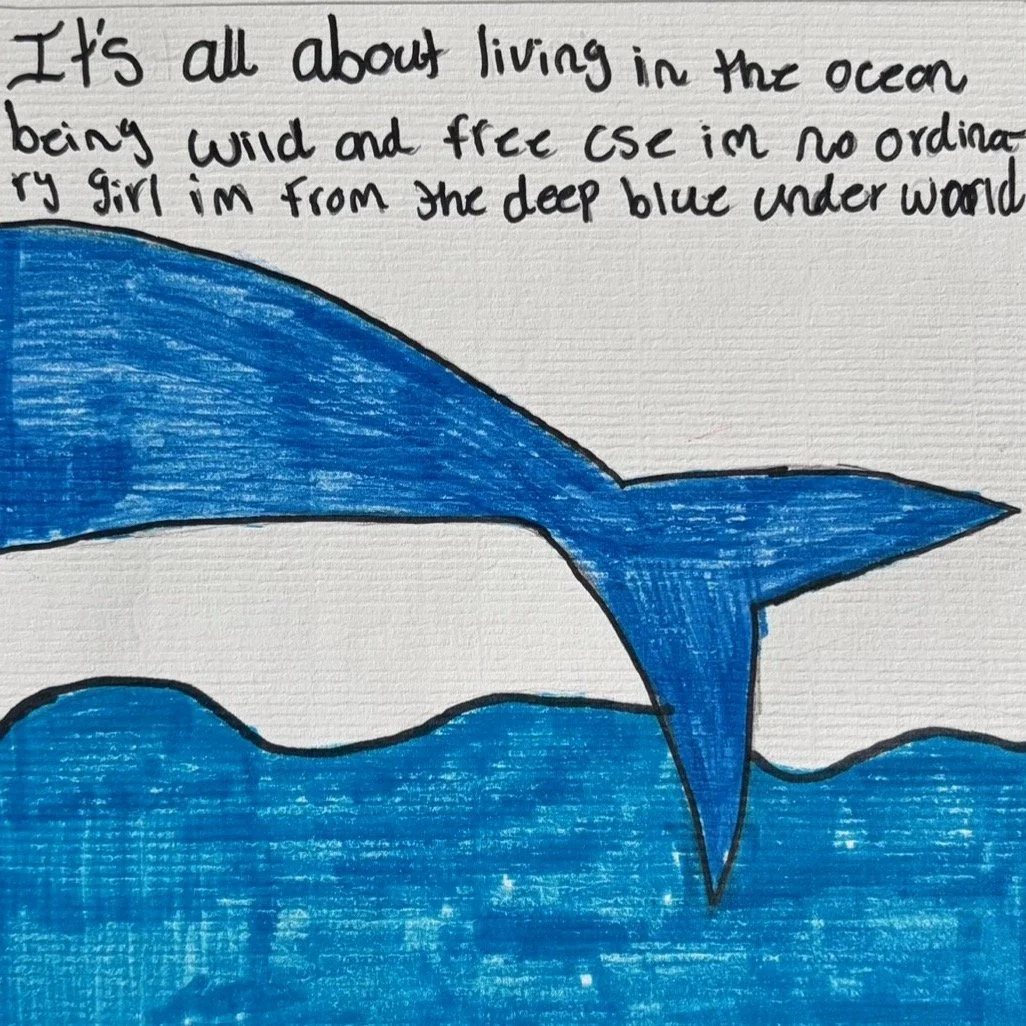 It's all about living in the ocean
being wild and free cse im no ordina-
ry girl im from the deep blue under world